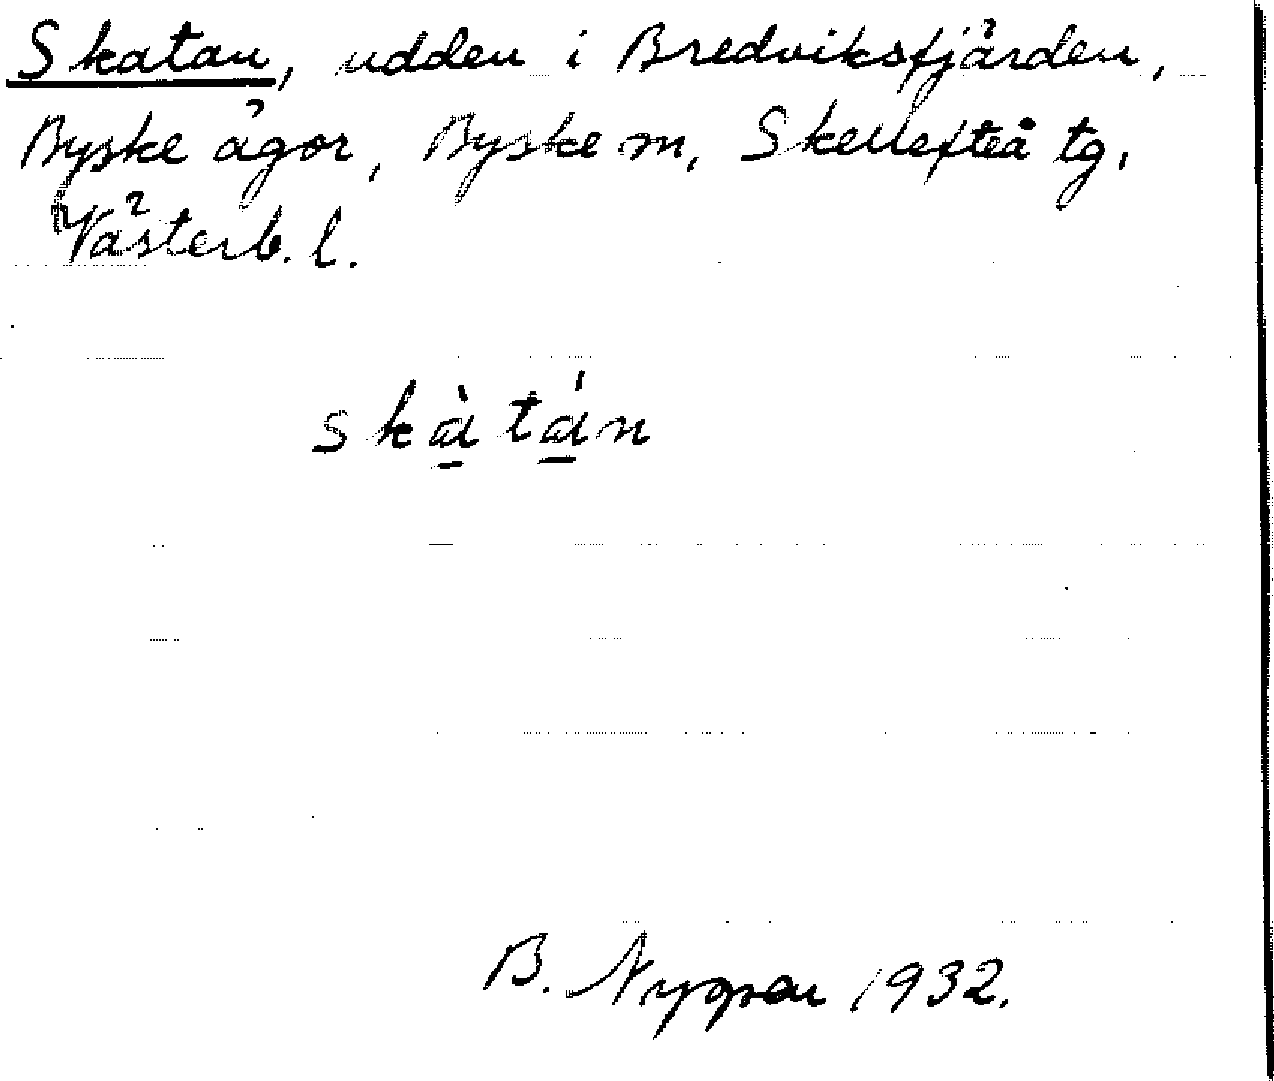 Skatan, udden i Bredviksfjärden,
Byske ägor, Byske sn, Skellefteå tg,
Västerb. l.
skà̱tá̱n
B. Nygren 1932.